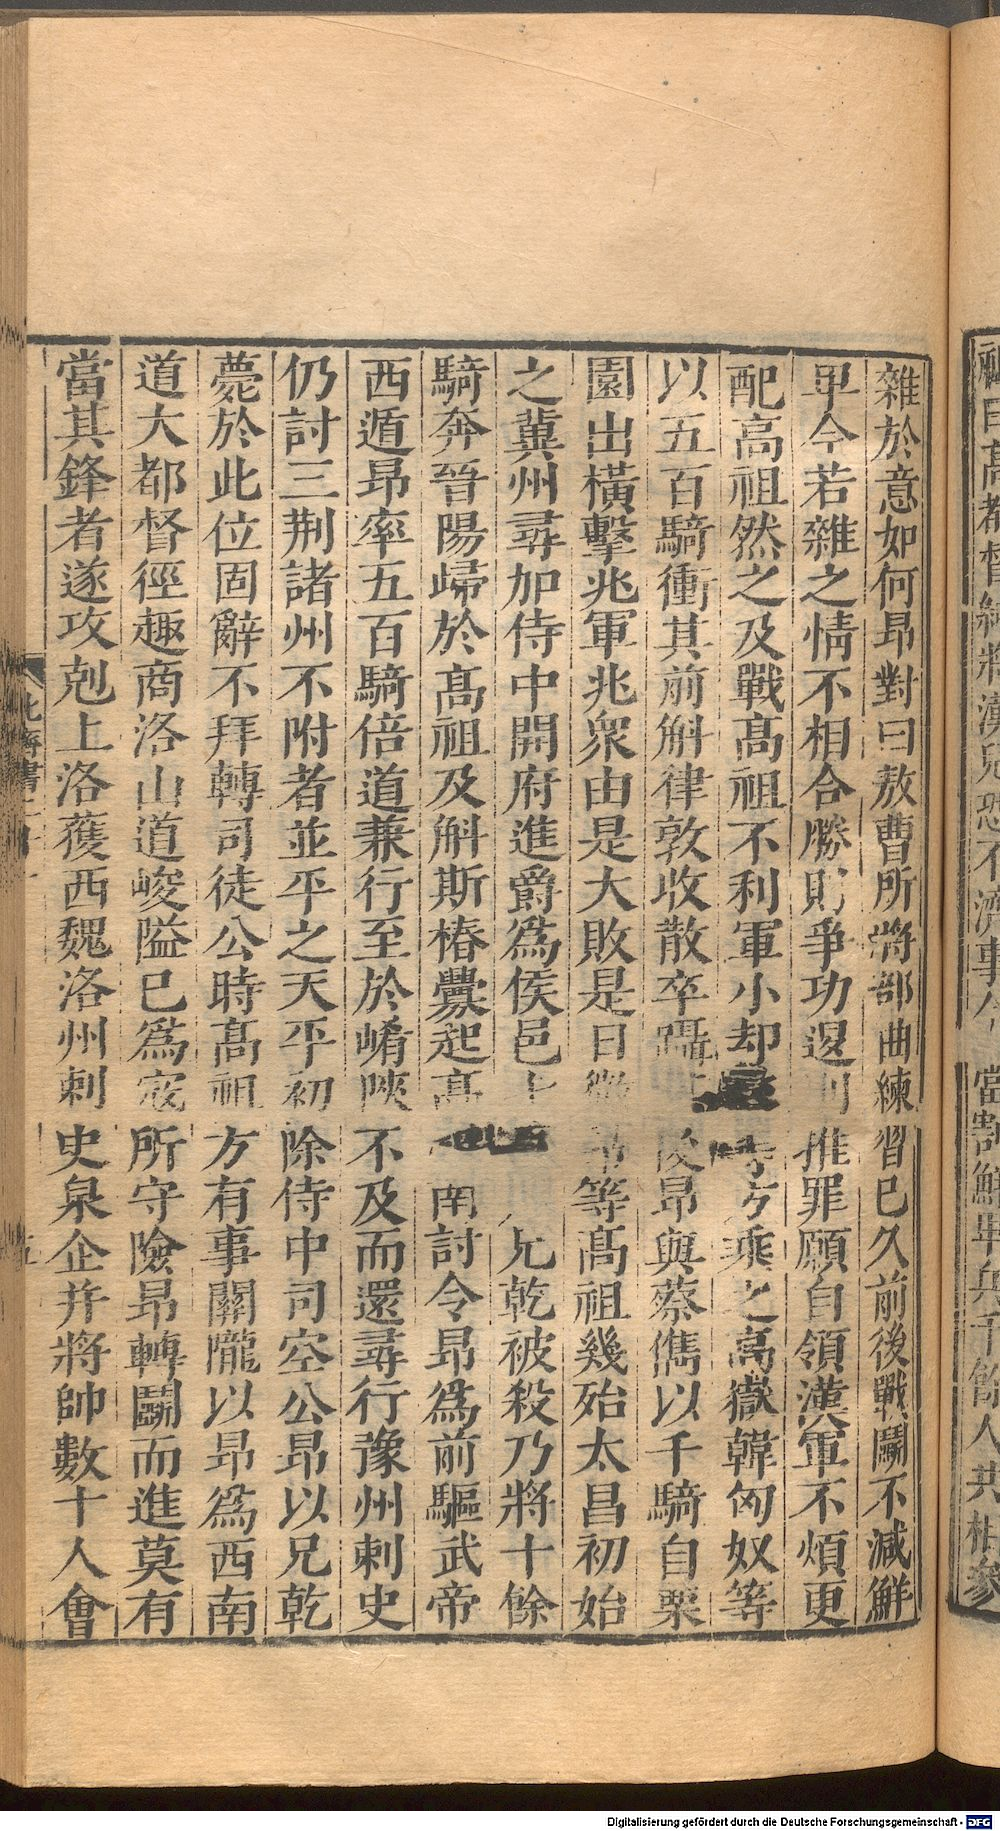 雜於意如何昂對曰敖曹所將部曲練習已久前後戰鬬不減鮮
卑今若雜之情不相合勝則爭功退則推罪願自領漢軍不煩更
配高祖然之及戰高祖不利軍小却方乘之高嶽韓匈奴等
以五百騎衝其前斛律敦收散卒躡後昂與蔡儁以千騎自栗
園出橫擊兆軍兆衆由是大敗是日等高祖幾殆太昌初始
之冀州尋加侍中開府進爵爲侯邑兄乾被殺乃將十餘
騎奔晉陽歸於高祖及斛斯椿釁起高南討令昂爲前驅武帝
西遁昂率五百騎倍道兼行至於崤陝不及而還尋行豫州刺史
仍討三荆諸州不附者並平之天平初除侍中司空公昂以兄乾
薨於此位固辭不拜轉司徒公時高祖方有事關隴以昂爲西南
道大都督徑趣商洛山道峻隘已爲寇所守險昂轉鬬而進莫有
當其鋒者遂攻剋上洛獲西魏洛州刺史泉企并將帥數十人會
北齊書
當割鮮卑兵千餘人共相參
Digitalisierung gefördert durch die Deutsche Forschungsgemeinschaft - DFG